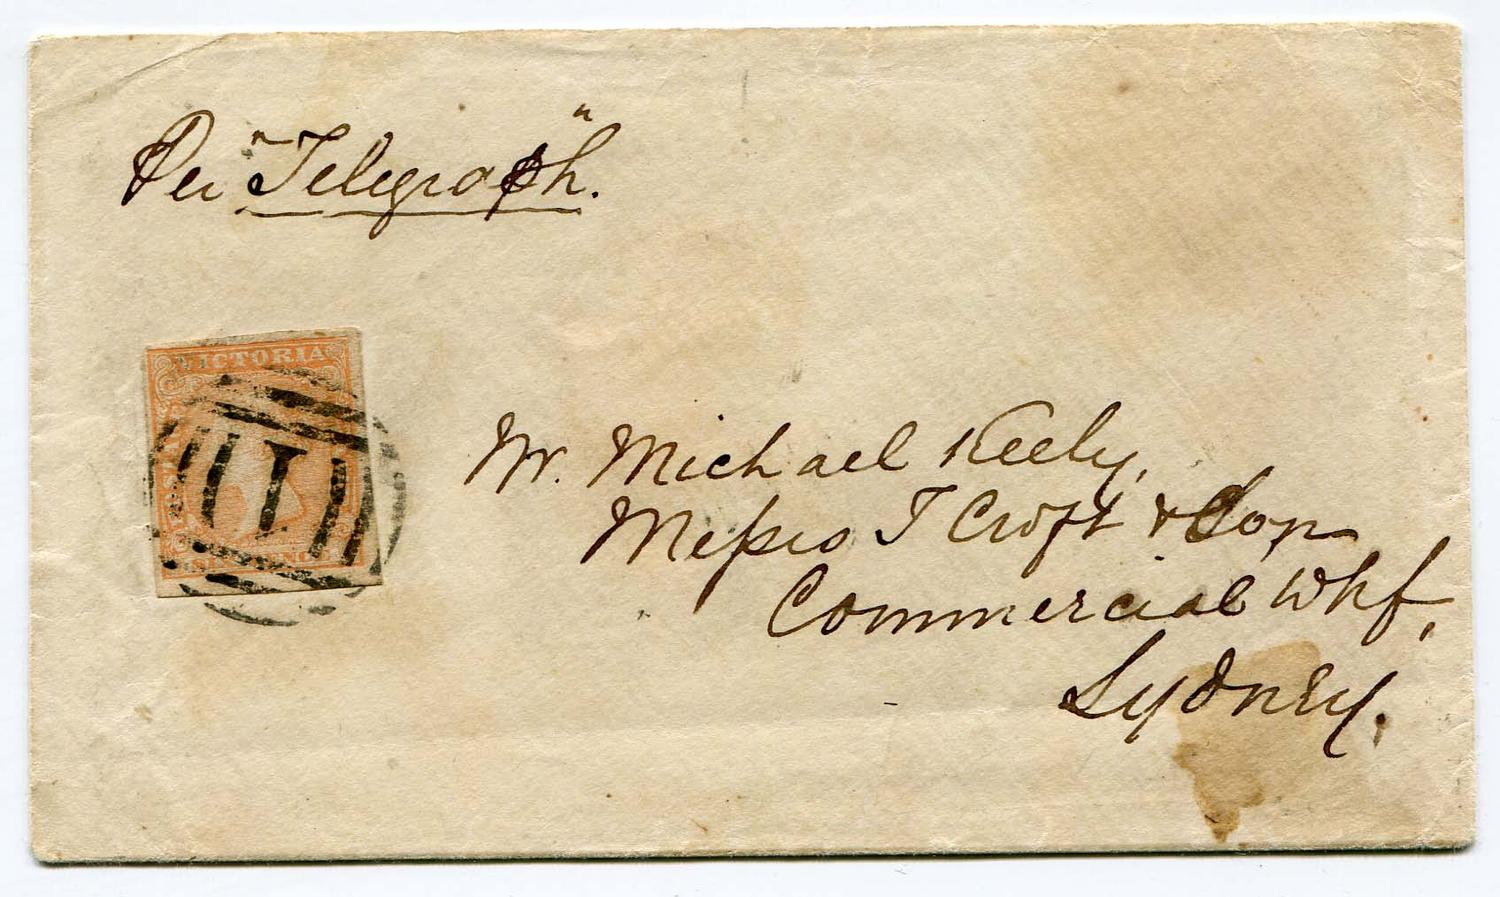 Per "Telegraph".
VICTORIA
1
SIXPENCE
Mr. Michael Keely,
Messrs T Croft & Son
Commercial Whf,
Sydney.